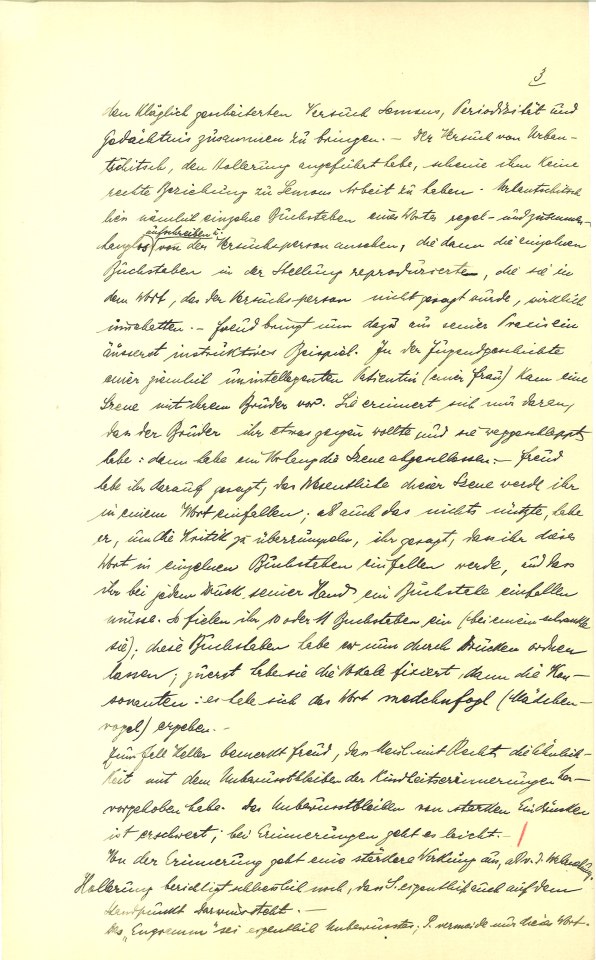 3
den kläglich gescheiterten Versuch Semons, Periodizität und
Gedächtnis zusammen zu bringen. — Der Versuch von Urban-
tschitsch, den Hollerung angeführt habe, scheine ihm keine
rechte Beziehung zu Semons Arbeit zu haben. Urbantschitsch
liess nämlich einzelne Buchstaben eines Wortes regel- und zusammen-
aufschreiben u.
hanglos von der Versuchsperson ansehen, die dann die einzelnen
Buchstaben in der Stellung reproduzierten, die sie in
dem Wort, das der Versuchsperson nicht gesagt wurde, wirklich
innehatten. — Freud bringt nun dazu aus seiner Praxis ein
äusserst instruktives Beispiel. In der Jugendgeschichte
einer ziemlich unintellegenten Patientin (einer Frau) kam eine
Szene mit ihrem Bruder vor. Sie erinnert sich nur daran,
dass der Bruder ihr etwas zeigen wollte und sie weggeschleppt
habe: dann habe ein Vorhang die Szene abgeschlossen. — Freud
habe ihr darauf gesagt, das Wesentliche dieser Szene werde ihr
in einem Wort einfallen; als auch das nichts nützte, habe
er, um die Kritik zu überrumpeln, ihr gesagt, dass ihr dieses
Wort in einzelnen Buchstaben einfallen werde, und dass
ihr bei jedem Druck seiner Hand ein Buchstabe einfallen
müsse. So fielen ihr 10 oder 11 Buchstaben ein (bei einem schwankte
sie); diese Buchstaben habe er nun durch Drücken ordnen
lassen; zuerst habe sie die Vokale fixiert, dann die Kon-
sonanten: es habe sich das Wort madchnfogl (Mädchen-
vogel) ergeben. —
Zum Fall Keller bemerkt Freud, dass Meisl mit Recht die Ähnlich-
keit mit dem Unbewusstbleiben der Kindheitserinnerungen her-
vorgehoben habe. Das Unbewusstbleiben von starken Eindrücken
ist erschwert; bei Erinnerungen geht es leicht. —
Von der Erinnerung geht eine stärkere Wirkung aus, als v. d. Wahrnehmung.
Hollerung berichtigt schliesslich noch, dass S. eigentlich auch auf dem
Standpunkt Darwins steht. —
Das „Engramm" sei eigentlich Unbewusstes; S. vermeide nur dieses Wort.